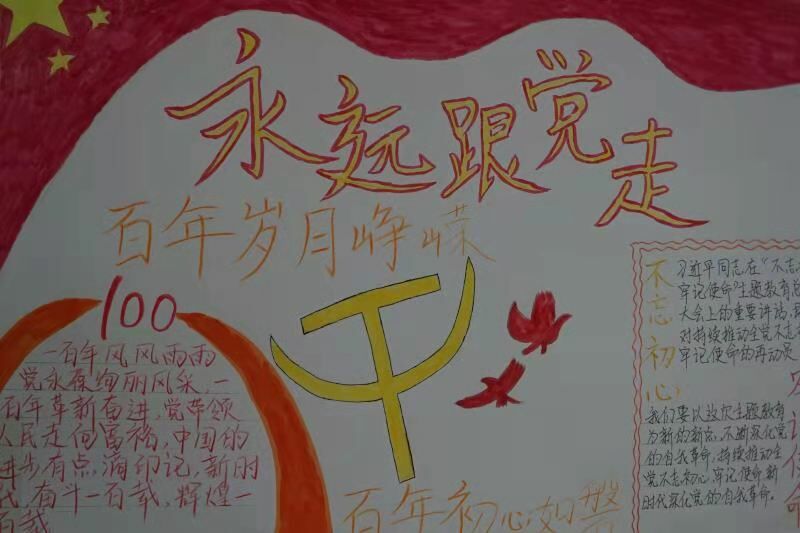 永远跟党走
百年岁月峥嵘
100
一百年风风雨雨
党永葆绚丽风采,一
百年革新奋进,党带领
人民走向富裕,中国的
进步有点滴印记,新时
代,奋斗一百载,辉煌一
百载
百年初心如磐
不忘初心
习近平同志在“不忘
牢记使命”主题教育总
大会上的重要讲话,
对持续推动全党不忘
牢记使命的再动员
我们要以这次主题教育
为新的新点,不断深化党
的自我革命,持续推动全
党不忘初心,牢记使命新
时代深化党的自我革命。
记使命